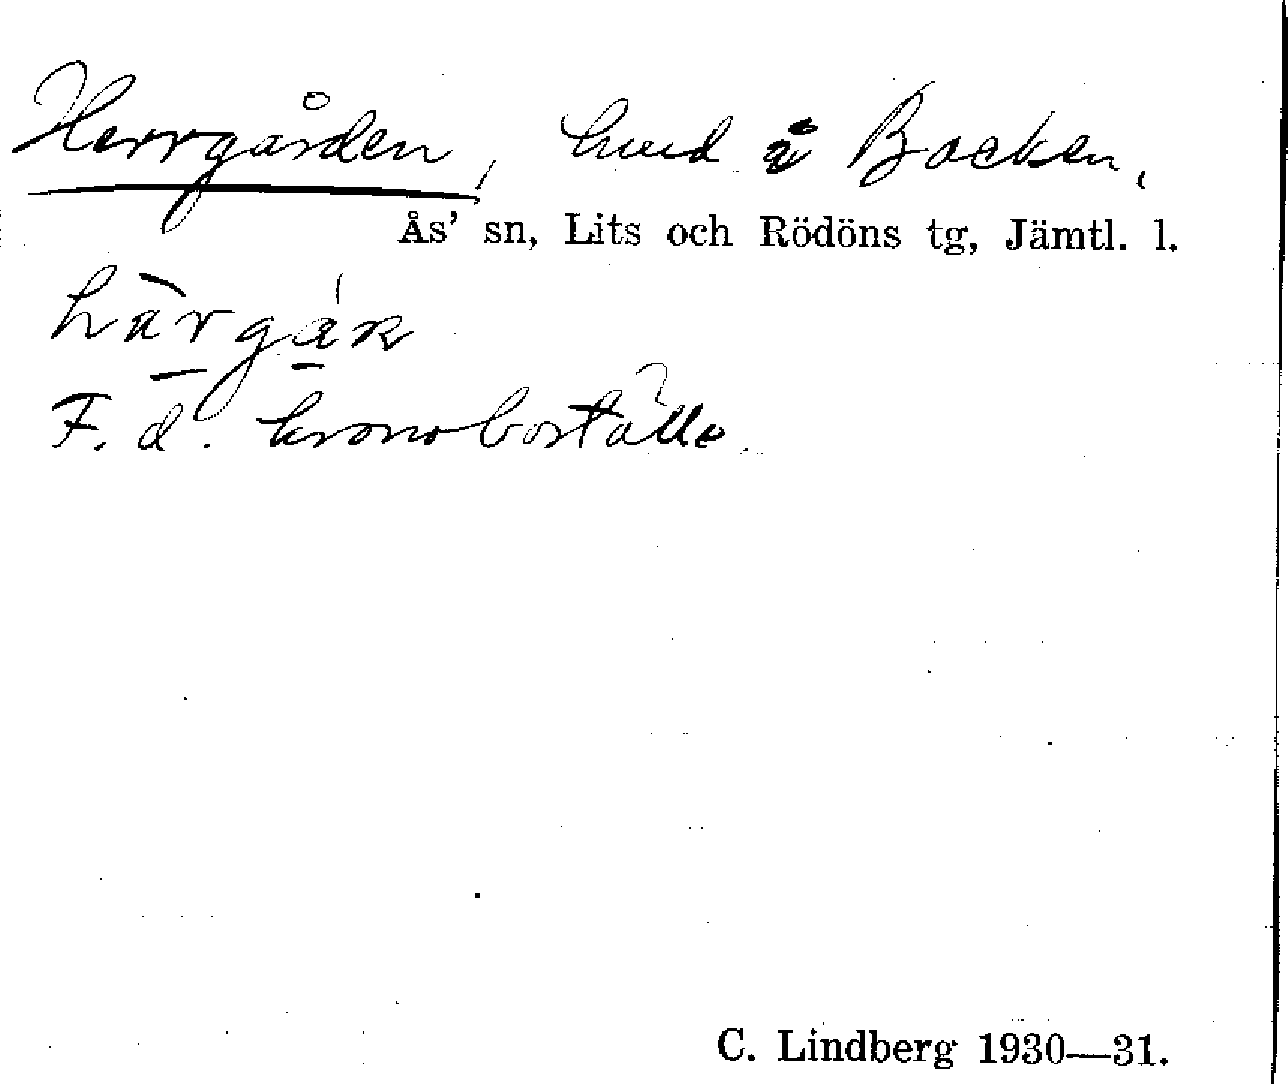 Herrgården, hmd å Backen,
Ås' sn, Lits och Rödöns tg, Jämtl. l.
F. d. kronoboställe.
C. Lindberg 1930—31.